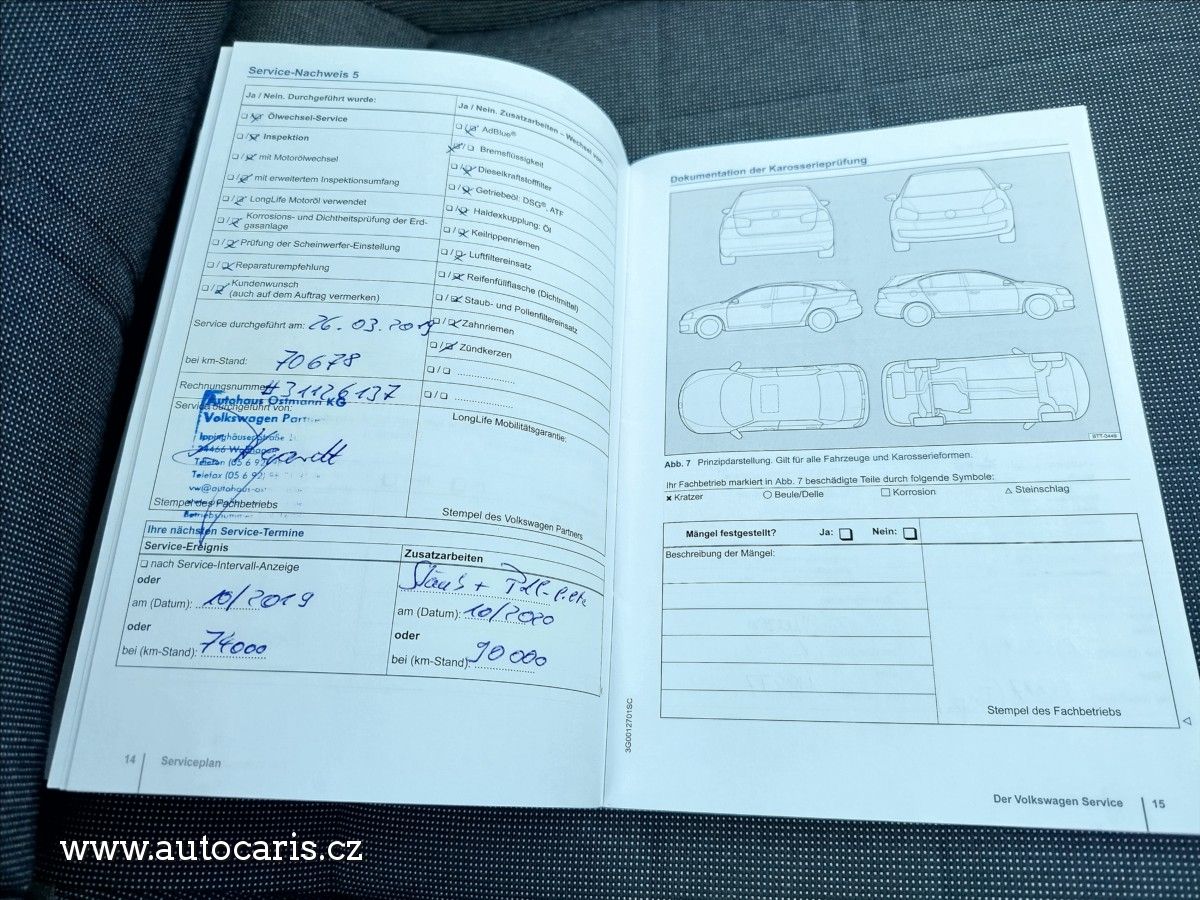 Service-Nachweis 5
Ja / Nein. Durchgeführt wurde:
Ölwechsel-Service
Inspektion
mit Motorölwechsel
mit erweitertem Inspektionsumfang
LongLife Motoröl verwendet
Korrosions- und Dichtheitsprüfung der Erd-
gasanlage
Prüfung der Scheinwerfer-Einstellung
Reparaturempfehlung
Kundenwunsch
(auch auf dem Auftrag vermerken)
Service durchgeführt am: 26.03.2019
bei km-Stand: 70678
Rechnungsnummer #31126137
Service durchgeführt von:
Autohaus Ostmann KG
Volkswagen Part
Ippinghäuser Straße
34466
Telefon (05 6 92)
Telefax (05 6 92)
vw@autohaus-ost
Stempel des Fachbetriebs
Ja / Nein. Zusatzarbeiten – Wechsel von:
AdBlue®
Bremsflüssigkeit
Dieselkraftstofffilter
Getriebeöl: DSG®, ATF
Haldexkupplung: Öl
Keilrippenriemen
Luftfiltereinsatz
Reifenfüllflasche (Dichtmittel)
Staub- und Pollenfiltereinsatz
Zahnriemen
Zündkerzen
LongLife Mobilitätsgarantie:
Stempel des Volkswagen Partners
Ihre nächsten Service-Termine
Service-Ereignis
nach Service-Intervall-Anzeige
oder
am (Datum): 10/2019
oder
bei (km-Stand): 74000
Zusatzarbeiten
Staub +
am (Datum): 10/2020
oder
bei (km-Stand): 90 000
14 Serviceplan
Dokumentation der Karosserieprüfung
BTT-0449
Abb. 7 Prinzipdarstellung. Gilt für alle Fahrzeuge und Karosserieformen.
Ihr Fachbetrieb markiert in Abb. 7 beschädigte Teile durch folgende Symbole:
Kratzer Beule/Delle Korrosion Steinschlag
Mängel festgestellt? Ja: Nein:
Beschreibung der Mängel:
Stempel des Fachbetriebs
3G0012701SC
Der Volkswagen Service 15
www.autocaris.cz